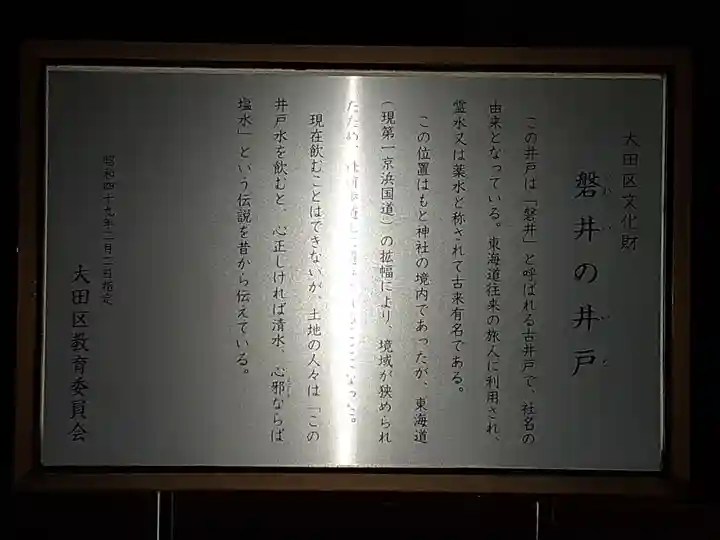 大田区文化財
磐井の井戸
この井戸は「磐井」と呼ばれる古井戸で、社名の
由来となっている。東海道往来の旅人に利用され、
霊水又は薬水と称されて古来有名である。
この位置はもと神社の境内であったが、東海道
(現第一京浜国道)の拡幅により、境域が狭められ
たため、
現在飲むことはできないが、土地の人々は「この
井戸水を飲むと、心正しければ清水、心邪ならば
塩水」という伝説を昔から伝えている。
昭和四十九年二月二日指定
大田区教育委員会